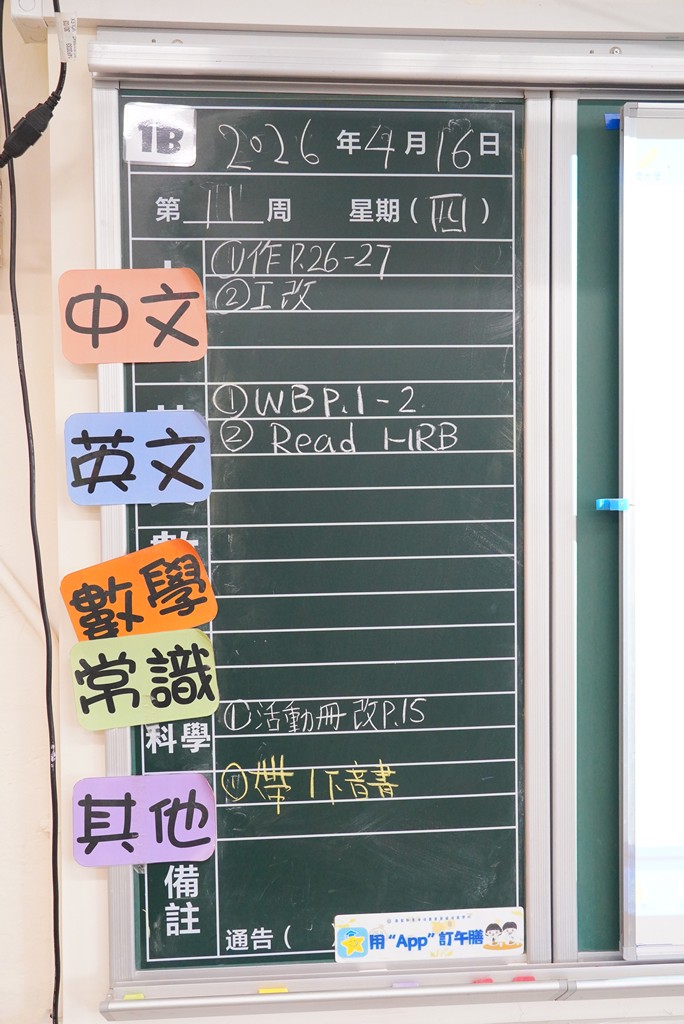 1B 2026 年 4 月 16 日
第 11 周 星期 ( 四 )
中文
①作P.26-27
②工改
英文
①WB P.1-2
② Read HRB
數學
常識
科學
①活動冊改P.15
其他
①帶1下音書
備註
通告 (
用 “App” 訂午膳